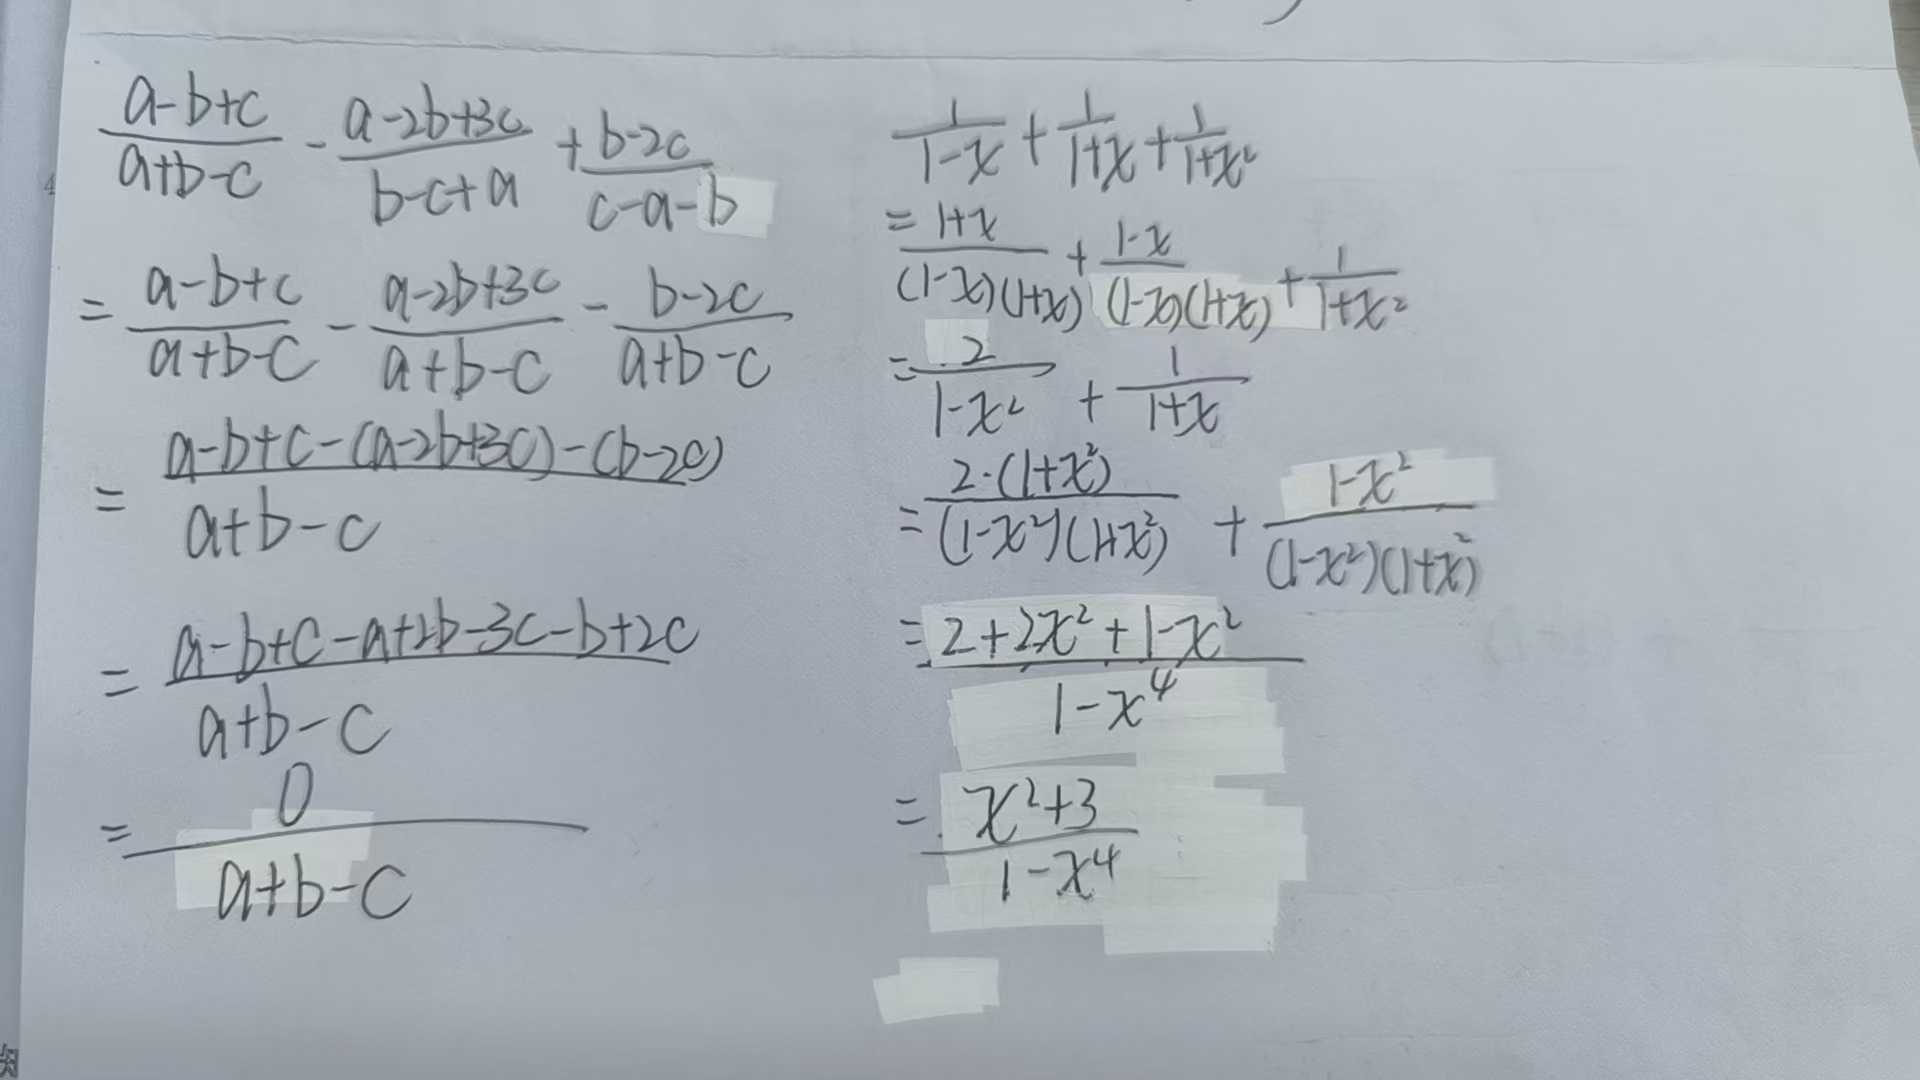 \frac{a-b+c}{a+b-c} - \frac{a-2b+3c}{b-c+a} + \frac{b-2c}{c-a-b}
= \frac{a-b+c}{a+b-c} - \frac{a-2b+3c}{a+b-c} - \frac{b-2c}{a+b-c}
= \frac{a-b+c-(a-2b+3c)-(b-2c)}{a+b-c}
= \frac{a-b+c-a+2b-3c-b+2c}{a+b-c}
= \frac{0}{a+b-c}
\frac{1}{1-x} + \frac{1}{1+x} + \frac{1}{1+x^2}
= \frac{1+x}{(1-x)(1+x)} + \frac{1-x}{(1-x)(1+x)} + \frac{1}{1+x^2}
= \frac{2}{1-x^2} + \frac{1}{1+x}
= \frac{2·(1+x^2)}{(1-x^2)(1+x^2)} + \frac{1-x^2}{(1-x^2)(1+x^2)}
= \frac{2+2x^2+1-x^2}{1-x^4}
= \frac{x^2+3}{1-x^4}